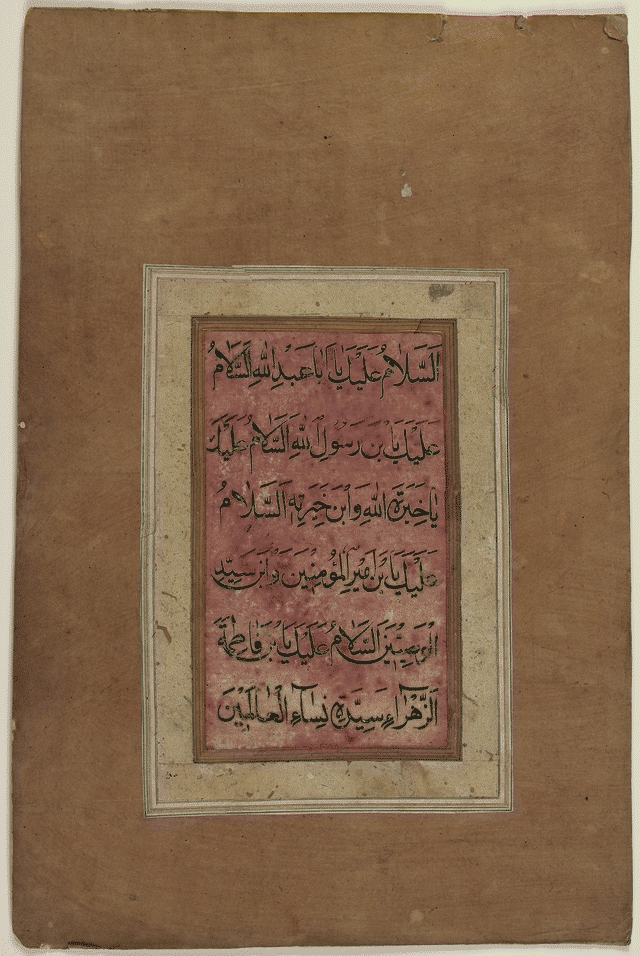 اَلسَّلامُ عَلَيْكَ يا اَبا عَبْدِاللهِ اَلسَّلامُ
عَلَيْكَ يَا بْنَ رَسُولِ اللهِ اَلسَّلامُ عَلَيْكَ
يا خِيَرَةِ اللهِ وَابْنَ خِيَرَتِهِ اَلسَّلامُ
عَلَيْكَ يَا بْنَ اَميرِ الْمُؤْمِنينَ وَابْنَ سَيِّدِ
الْوَصِيّينَ اَلسَّلامُ عَلَيْكَ يَا بْنَ فاطِمَةَ
اَلزَّهْرآءِ سَيِّدَةِ نِسآءِ الْعالَمينَ